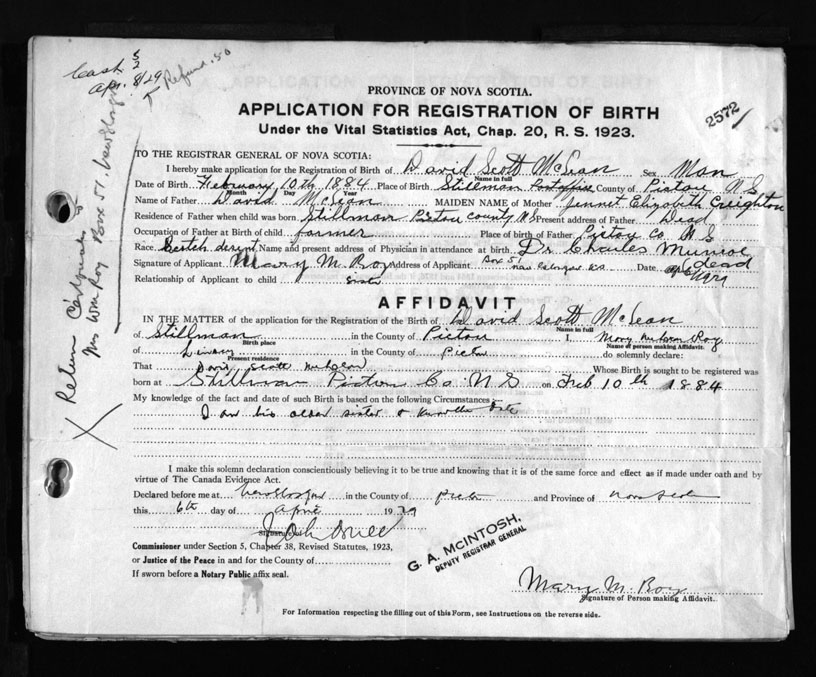 Cash
Apr. 8/29
Refund .50
2572
PROVINCE OF NOVA SCOTIA.
APPLICATION FOR REGISTRATION OF BIRTH
Under the Vital Statistics Act, Chap. 20, R. S. 1923.
TO THE REGISTRAR GENERAL OF NOVA SCOTIA:
I hereby make application for the Registration of Birth of David Scott McLean Sex Man
Name in full
Date of Birth February 10th 1884 Place of Birth Stillman County of Pictou N S
Month Day Year
Name of Father David McLean MAIDEN NAME of Mother Jennet Elizabeth Creighton
Residence of Father when child was born Stillman Pictou County N S Present address of Father Dead
Occupation of Father at Birth of child farmer Place of birth of Father Pictou Co N S
Race Scotch Name and present address of Physician in attendance at birth Dr Charles Munroe dead
Signature of Applicant Mary M. Roy Address of Applicant Box 51 Date 1929
Relationship of Applicant to child sister
AFFIDAVIT
IN THE MATTER of the application for the Registration of the Birth of David Scott McLean
Name in full
of Stillman in the County of Pictou I, Mary Roy
Birth place Name of person making Affidavit.
of in the County of Pictou do solemnly declare:
Present residence
That David Scott Whose Birth is sought to be registered was
born at Stillman Pictou Co. N S on Feb 10th 1884
My knowledge of the fact and date of such Birth is based on the following Circumstances
I am his older sister & date
I make this solemn declaration conscientiously believing it to be true and knowing that it is of the same force and effect as if made under oath and by
virtue of The Canada Evidence Act.
Declared before me at in the County of and Province of
this 6th day of April 1929
Signature of
Commissioner under Section 5, Chapter 38, Revised Statutes, 1923,
or Justice of the Peace in and for the County of
If sworn before a Notary Public affix seal.
G. A. MCINTOSH,
DEPUTY REGISTRAR GENERAL
Mary M. Roy
Signature of Person making Affidavit.
For Information respecting the filling out of this Form, see Instructions on the reverse side.
Return Certificate
Mrs Wm Roy Box 51.